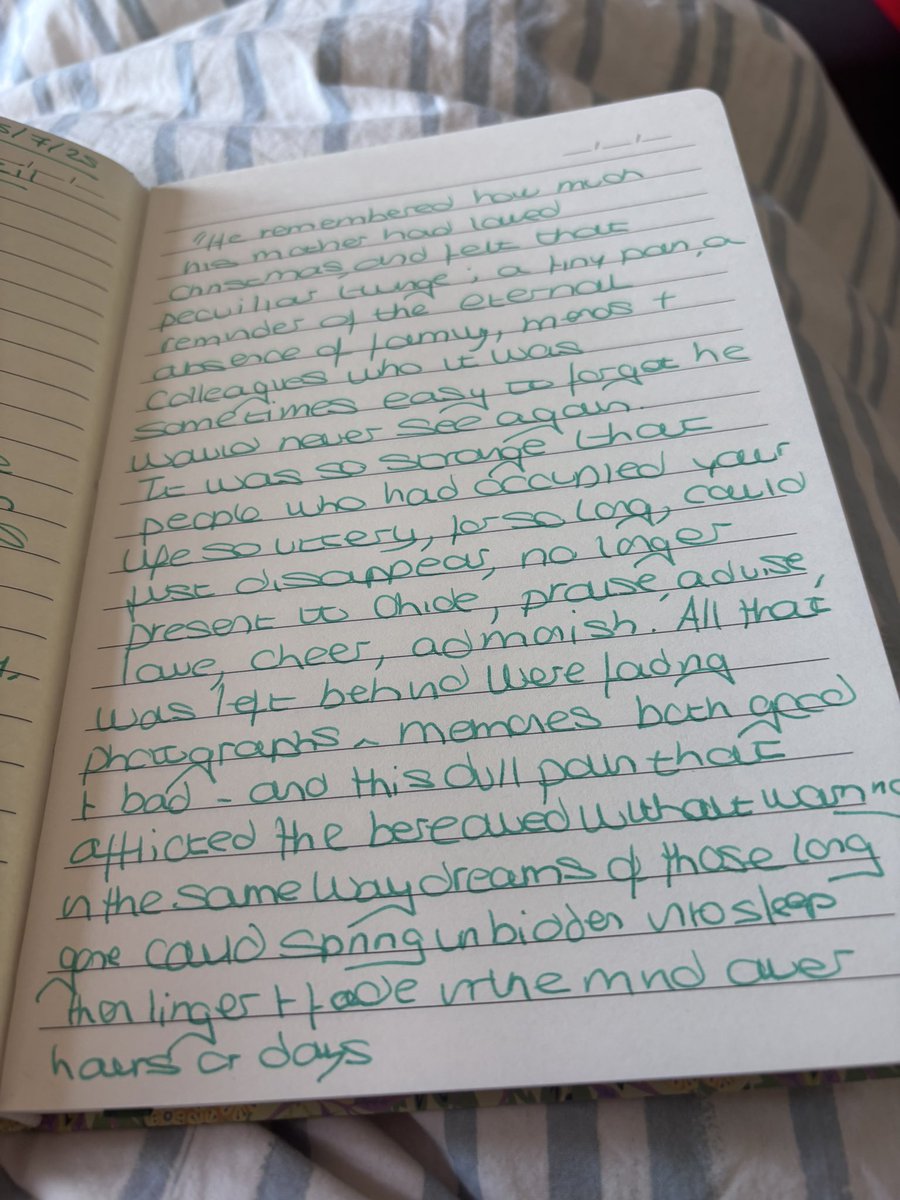 5/7/25
"He remembered how much
his mother had loved
Christmas, and felt that
peculiar twinge; a tiny pain, a
reminder of the eternal
absence of family, friends +
colleagues who it was
sometimes easy to forget he
would never see again.
It was so strange that
people who had occupied your
life so utterly, for so long, could
just disappear, no longer
present to chide, praise, advise,
love, cheer, admonish. All that
was left behind were fading
photographs - memories both good
+ bad - and this dull pain that
afflicted the bereaved without warning
in the same way dreams of those long
gone could spring unbidden into sleep
then linger + fade in the mind over
hours or days